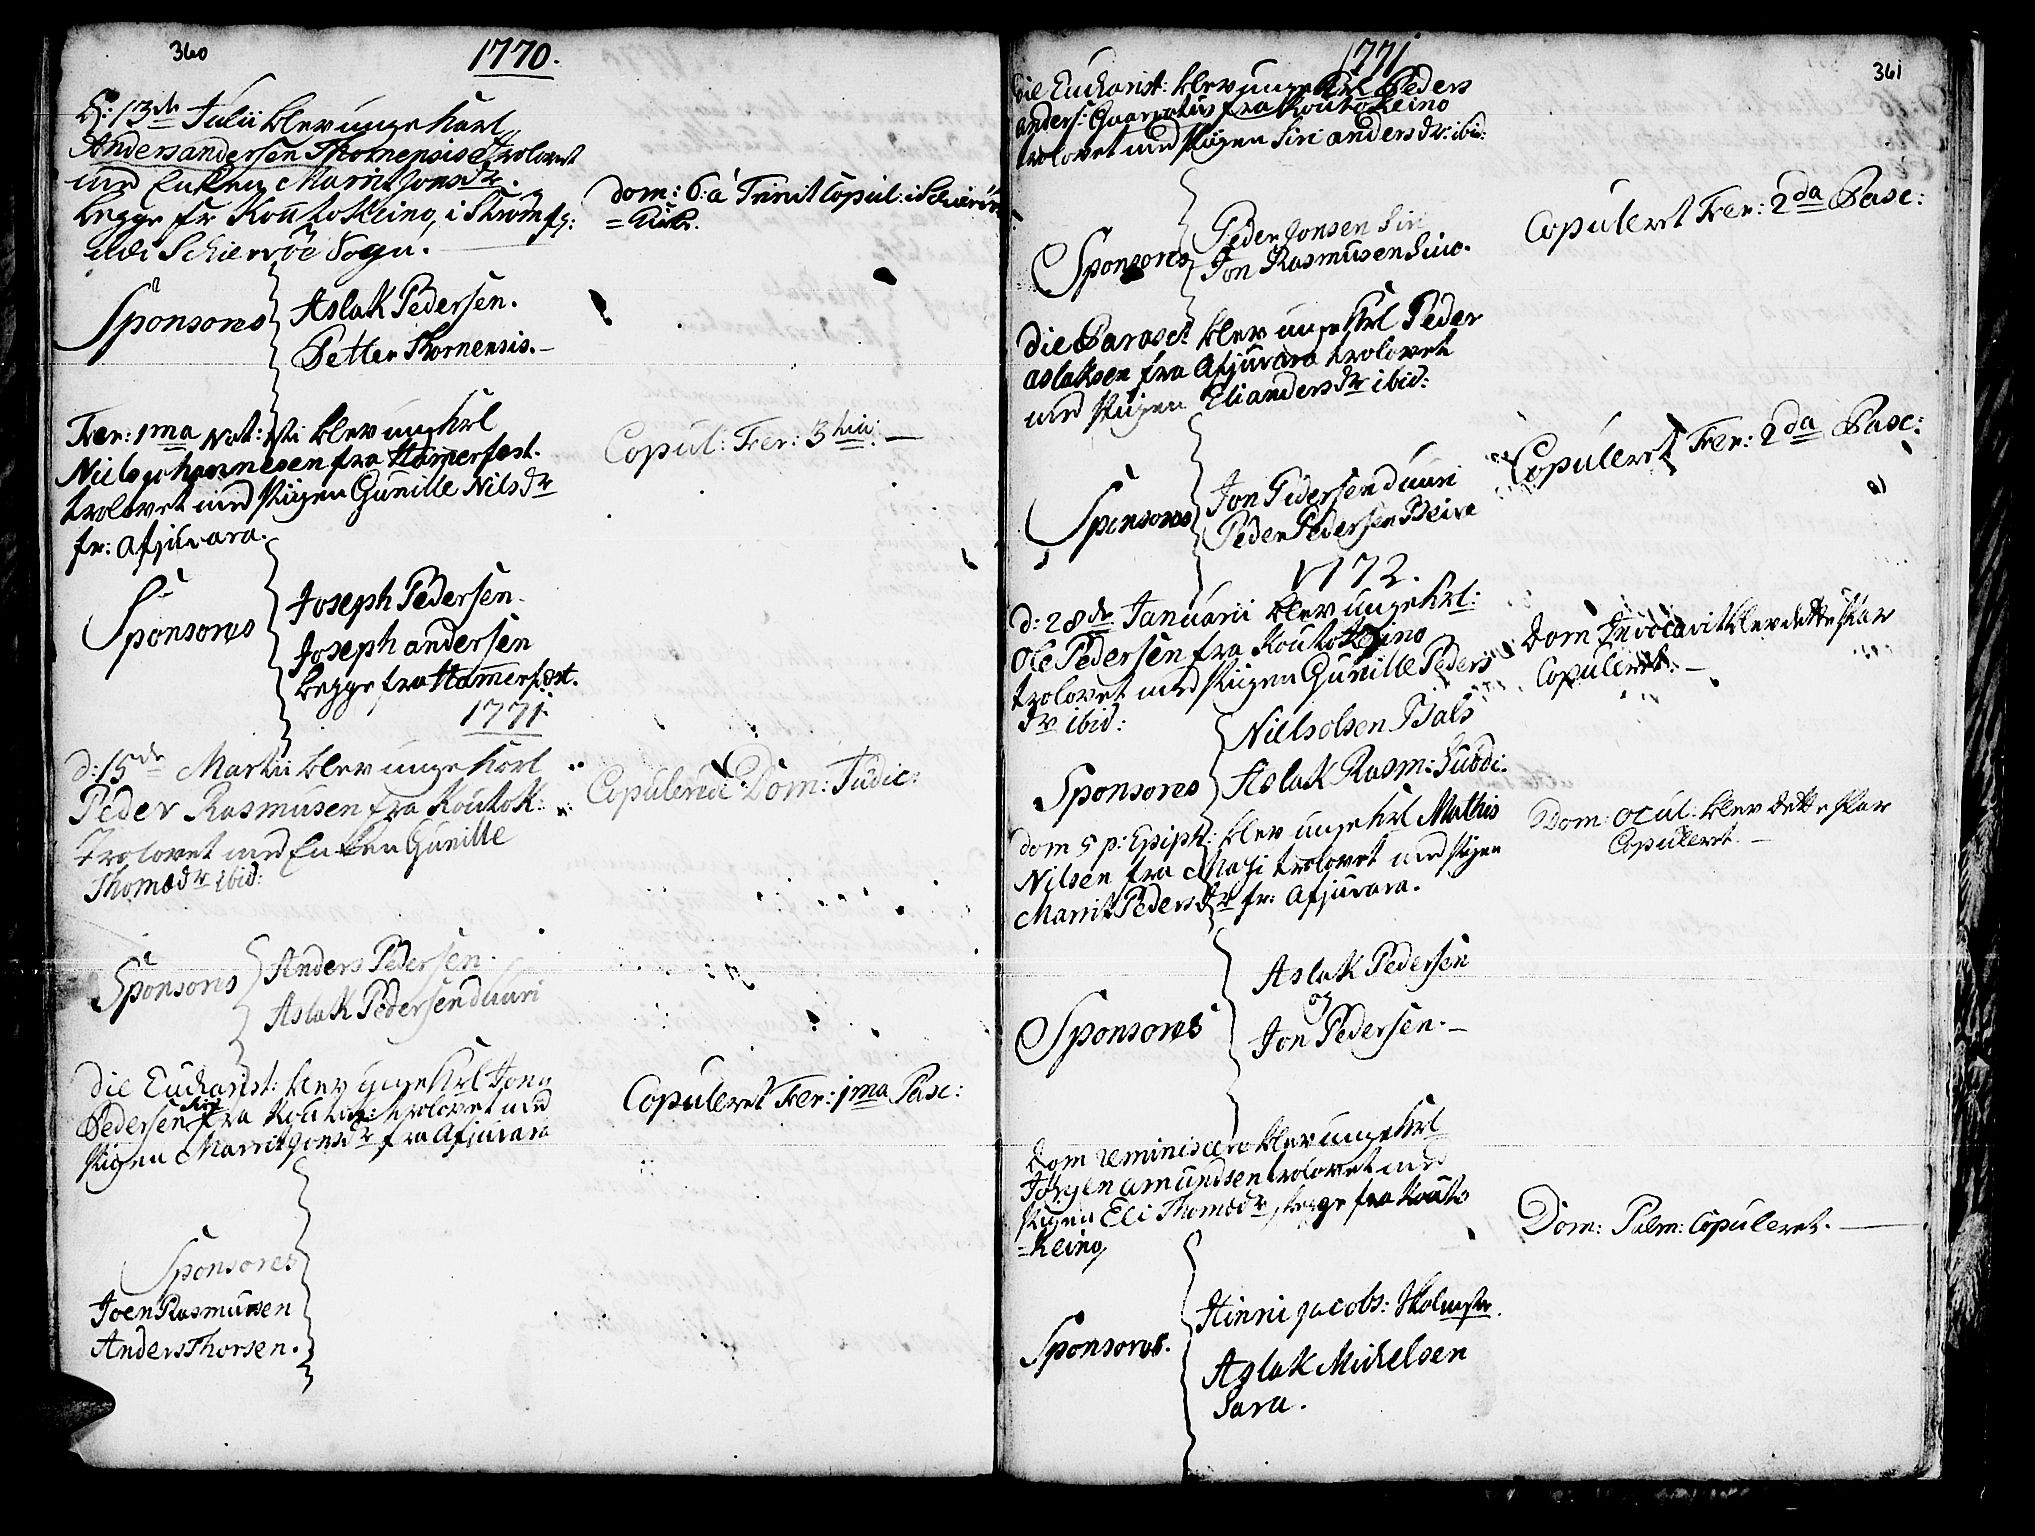 360
1770.
d: 13de Julii blev unge Karl
Anders andersen Thornensis trolovet
med Enken Marrit Jonsdr.
begge fr Koutokeino, i
udi Schiervöe Sogn.
dom: 6: a Trinit Copul: i Schier
= Kirke.
Sponsores
Aslak Pedersen.
Petter Thornensis.—
Fer: 1ma Nat: Xti blev unge Krl
Niels Johannesen fra Hamerfest.
trolovet med Pigen Gunille Nils dr
fr: Afjuvara.
Copul: Fer: 3tia: —
Sponsores
Joseph Pedersen.
Joseph andersen
begge fra Hamerfest.
1771.
d: 15de Martii blev unge Karl
Peder Rasmusen fra Koutok:
trolovet med Enken Gunille
Thomædr ibid:
Copulerede Dom: Judic:
Sponsores
Anders Pedersen.
Aslak Pedersen duuri
die Eucharist: blev unge Krl Jon
Pedersen Siri fra Koutok: trolovet med
Pigen Marrit Jonsdr fra Afjuvara
Copuleret Fer: 1ma Pasc:
Sponsores
Joen Rasmusen
Anders Thorsen.
1771
361
die Eucharist: blev unge Krl Peders
anders: fra Koutokeino
trolovet med Pigen Siri andersdr: ibid:
Copuleret Fer: 2da Pasc:
Sponsores
Peder Jonsen Siri
Jon Rasmusen
die Parasc: blev unge Krl Peder
aslaksen fra Afjuvara trolovet
med Pigen Eli andersdr ibid:
Copuleret Fer: 2da Pasc:
Sponsores
Jon Pedersen duuri
Peder Pedersen
1772.
d: 28de Januarii blev unge Krl:
Ole Pedersen fra Koutokeino
trolovet med Pigen Gunille Peders
dr ibid:
Dom Invocavit blev dette Par
Copuleret. —
Sponsores
Niels olsen Bals
Aslak Rasm:
Dom 5 p: Epiph: blev unge Krl Mathis
Nilsen fra Masi trolovet med Pigen
Marrit Pedersdr fr: Afjuvara.
Dom: Ocul: blev dette Par
Copuleret. —
Sponsores
Aslak Pedersen
og
Jon Pedersen. —
Dom reminiscere blev unge Krl
Jørgen amundsen trolovet med
Pigen Eli Thomædr, begge fra Kouto
=keino,
Dom: Palm: Copuleret. —
Sponsores.
Hinric Jacobs: Skolmestr.
Aslak Michelsen
Sara.